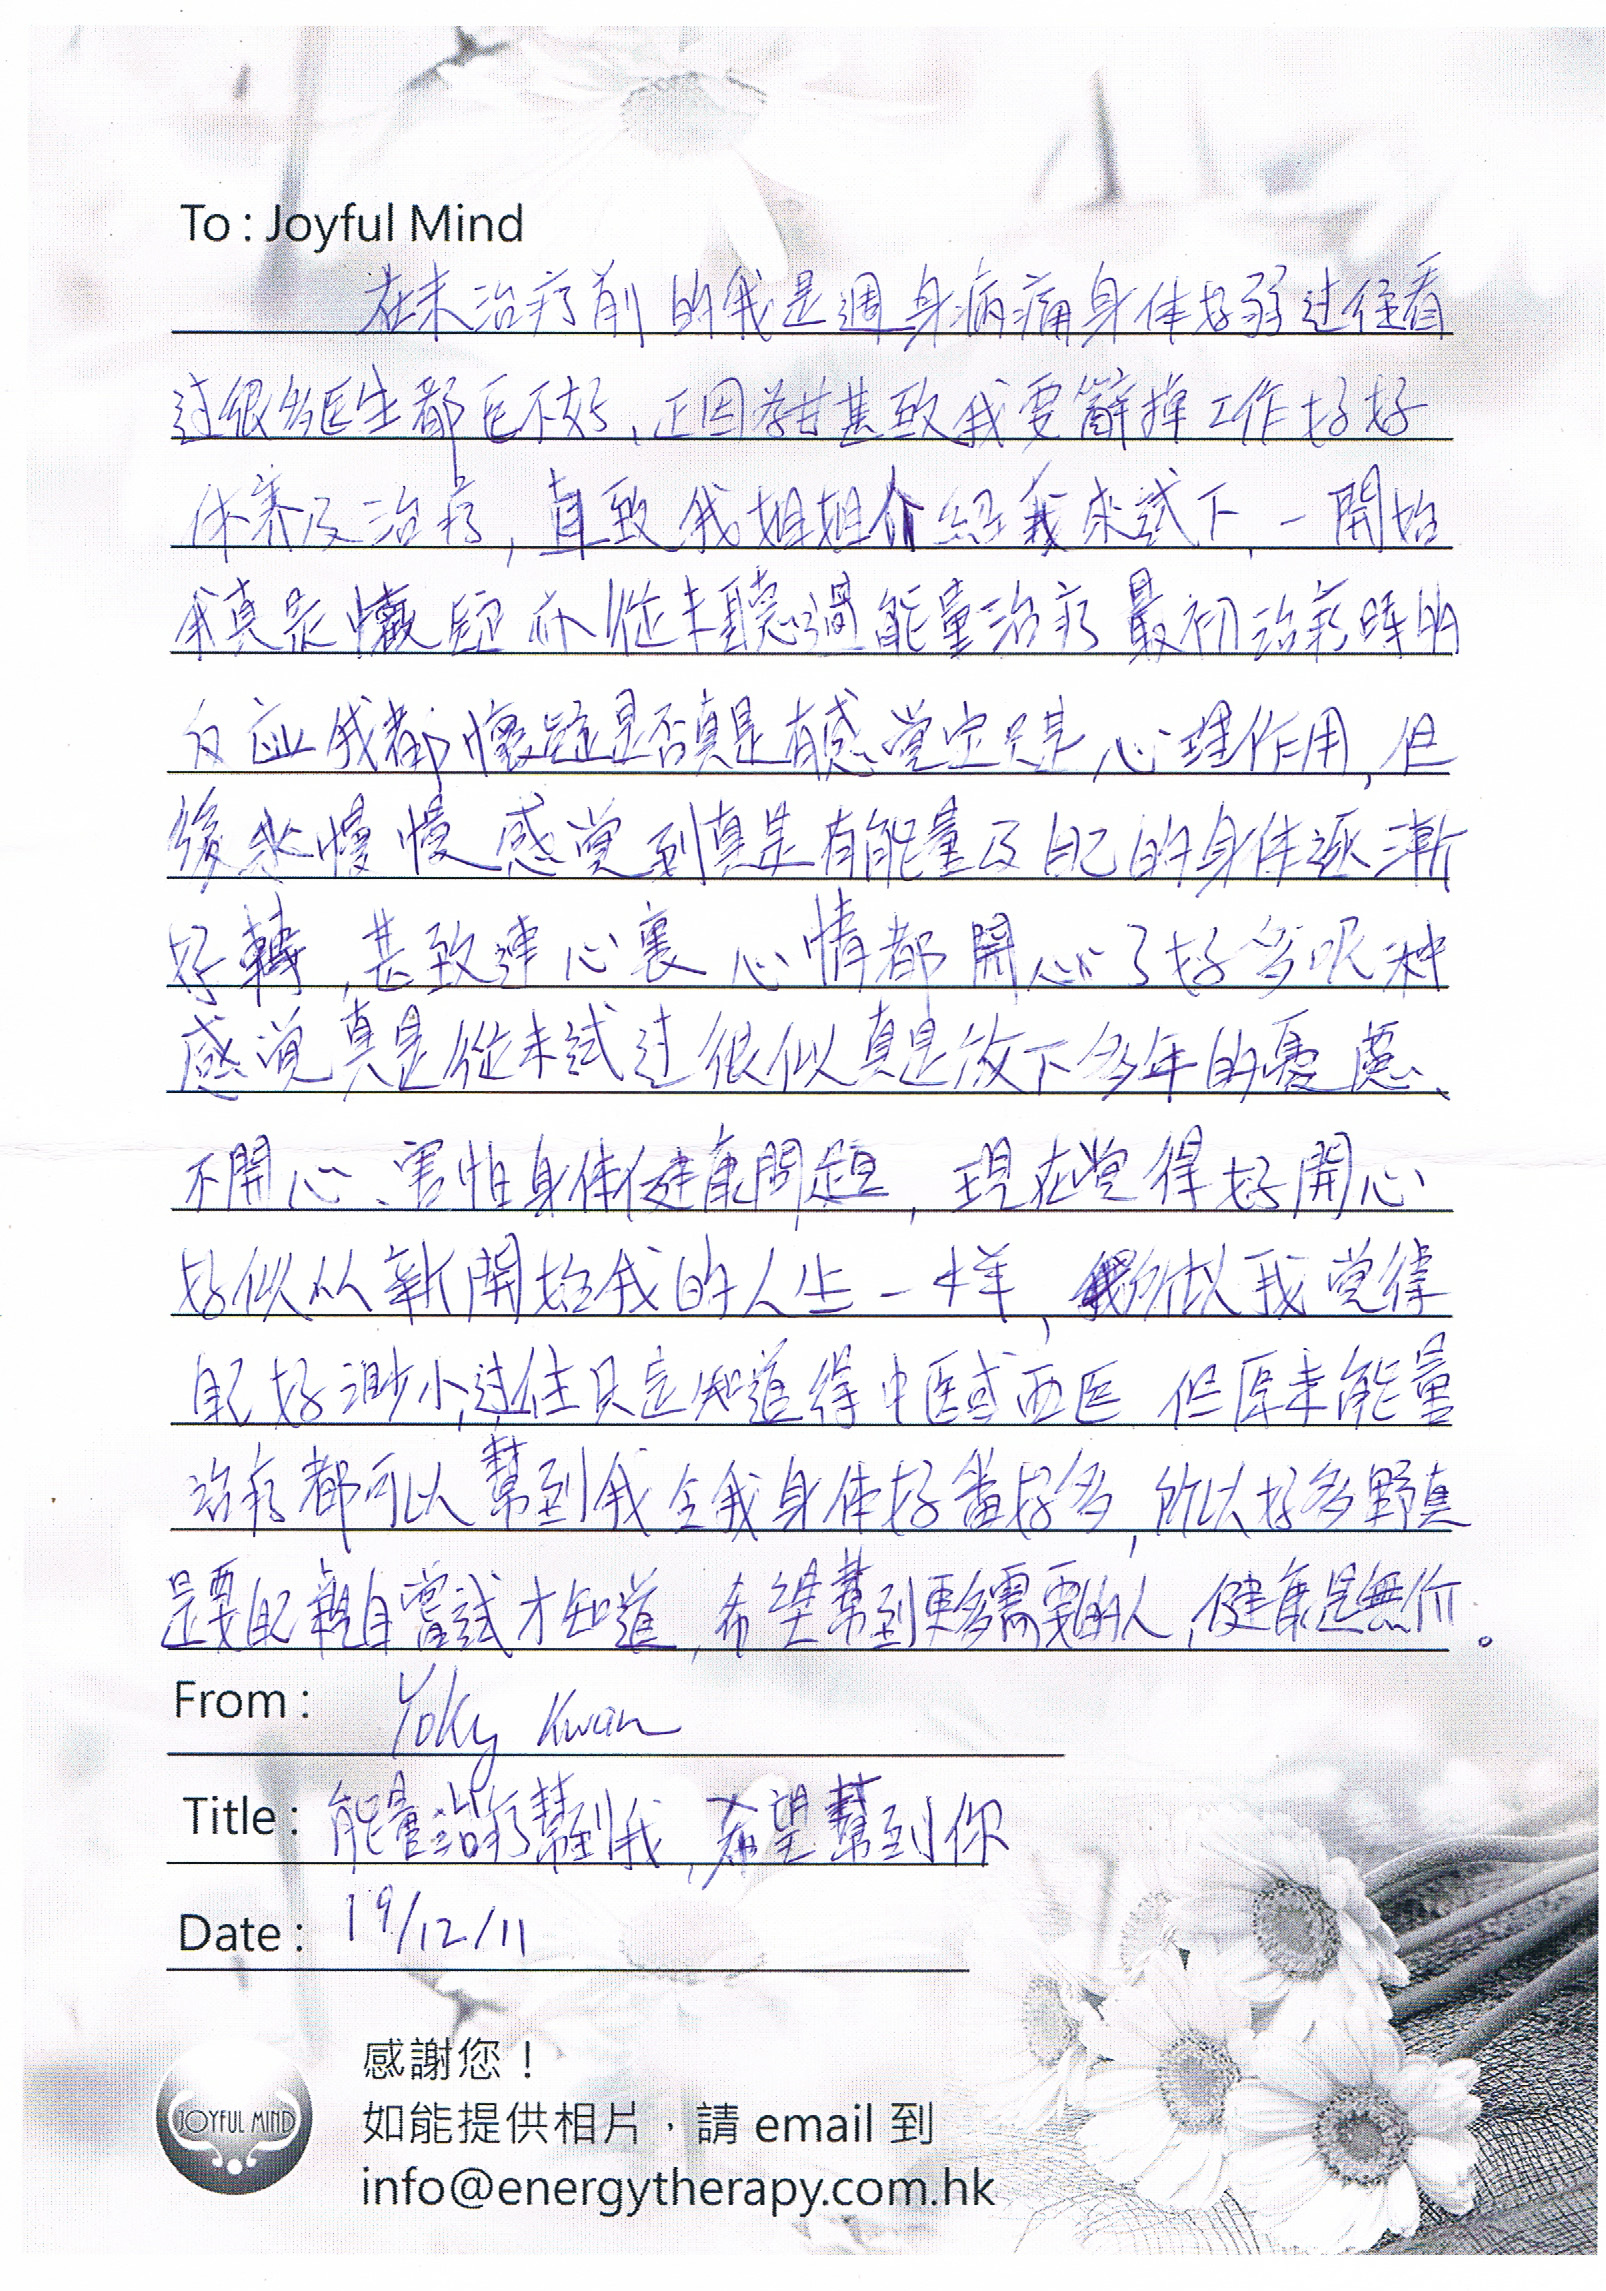 To : Joyful Mind
在未治疗前的我是週身病痛身体好弱过往看
过很多医生都医不好,正因為甚至致我要辭掉工作好好
休养及治疗,直致我姐姐介紹我來試下,一開始
我真是懷疑亦從未聽過能量治疗最初治疗時的
反应我都懷疑是否真是有感覚定只是心理作用,但
後來慢慢感覚到真是有能量及自己的身体逐漸
好轉,甚致連心裏心情都開心了好多呢种
感覚真是從未試过很似真是放下多年的憂慮、
不開心、害怕身体健康問題,現在覚得好開心
好似从新開始我的人生一样,所以我覚得
自己好渺小,过往只是知道得中医或西医但原來能量
治疗都可以幫到我令我身体好番好多,所以好多野真
是要自己親自嘗試才知道,希望幫到更多需要的人,健康是無价。
From : Yoky Kwan
Title : 能量治疗幫到我,希望幫到你
Date : 19/12/11
JOYFUL MIND
感謝您！
如能提供相片，請 email 到
info@energytherapy.com.hk